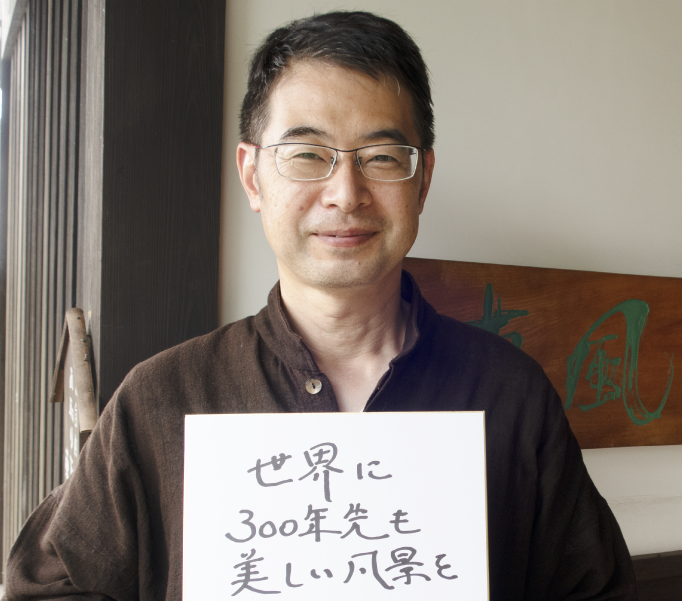 世界に
300年先も
美しい風景を
風